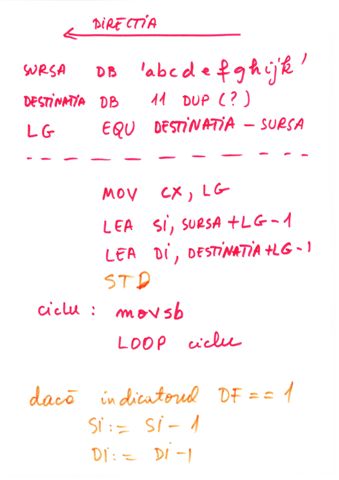 DIRECTIA
SURSA DB 'abcdefghijk'
DESTINATIA DB 11 DUP (?)
LG EQU DESTINATIA - SURSA
MOV CX, LG
LEA SI, SURSA+LG-1
LEA DI, DESTINATIA+LG-1
STD
ciclu: movsb
LOOP ciclu
dacă indicatorul DF == 1
SI:= SI-1
DI:= DI-1